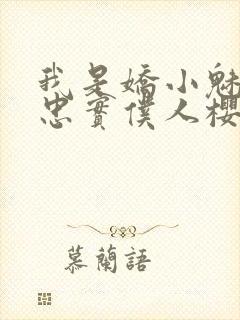 我是嬌小魅
忠實僕人櫻
慕蘭語